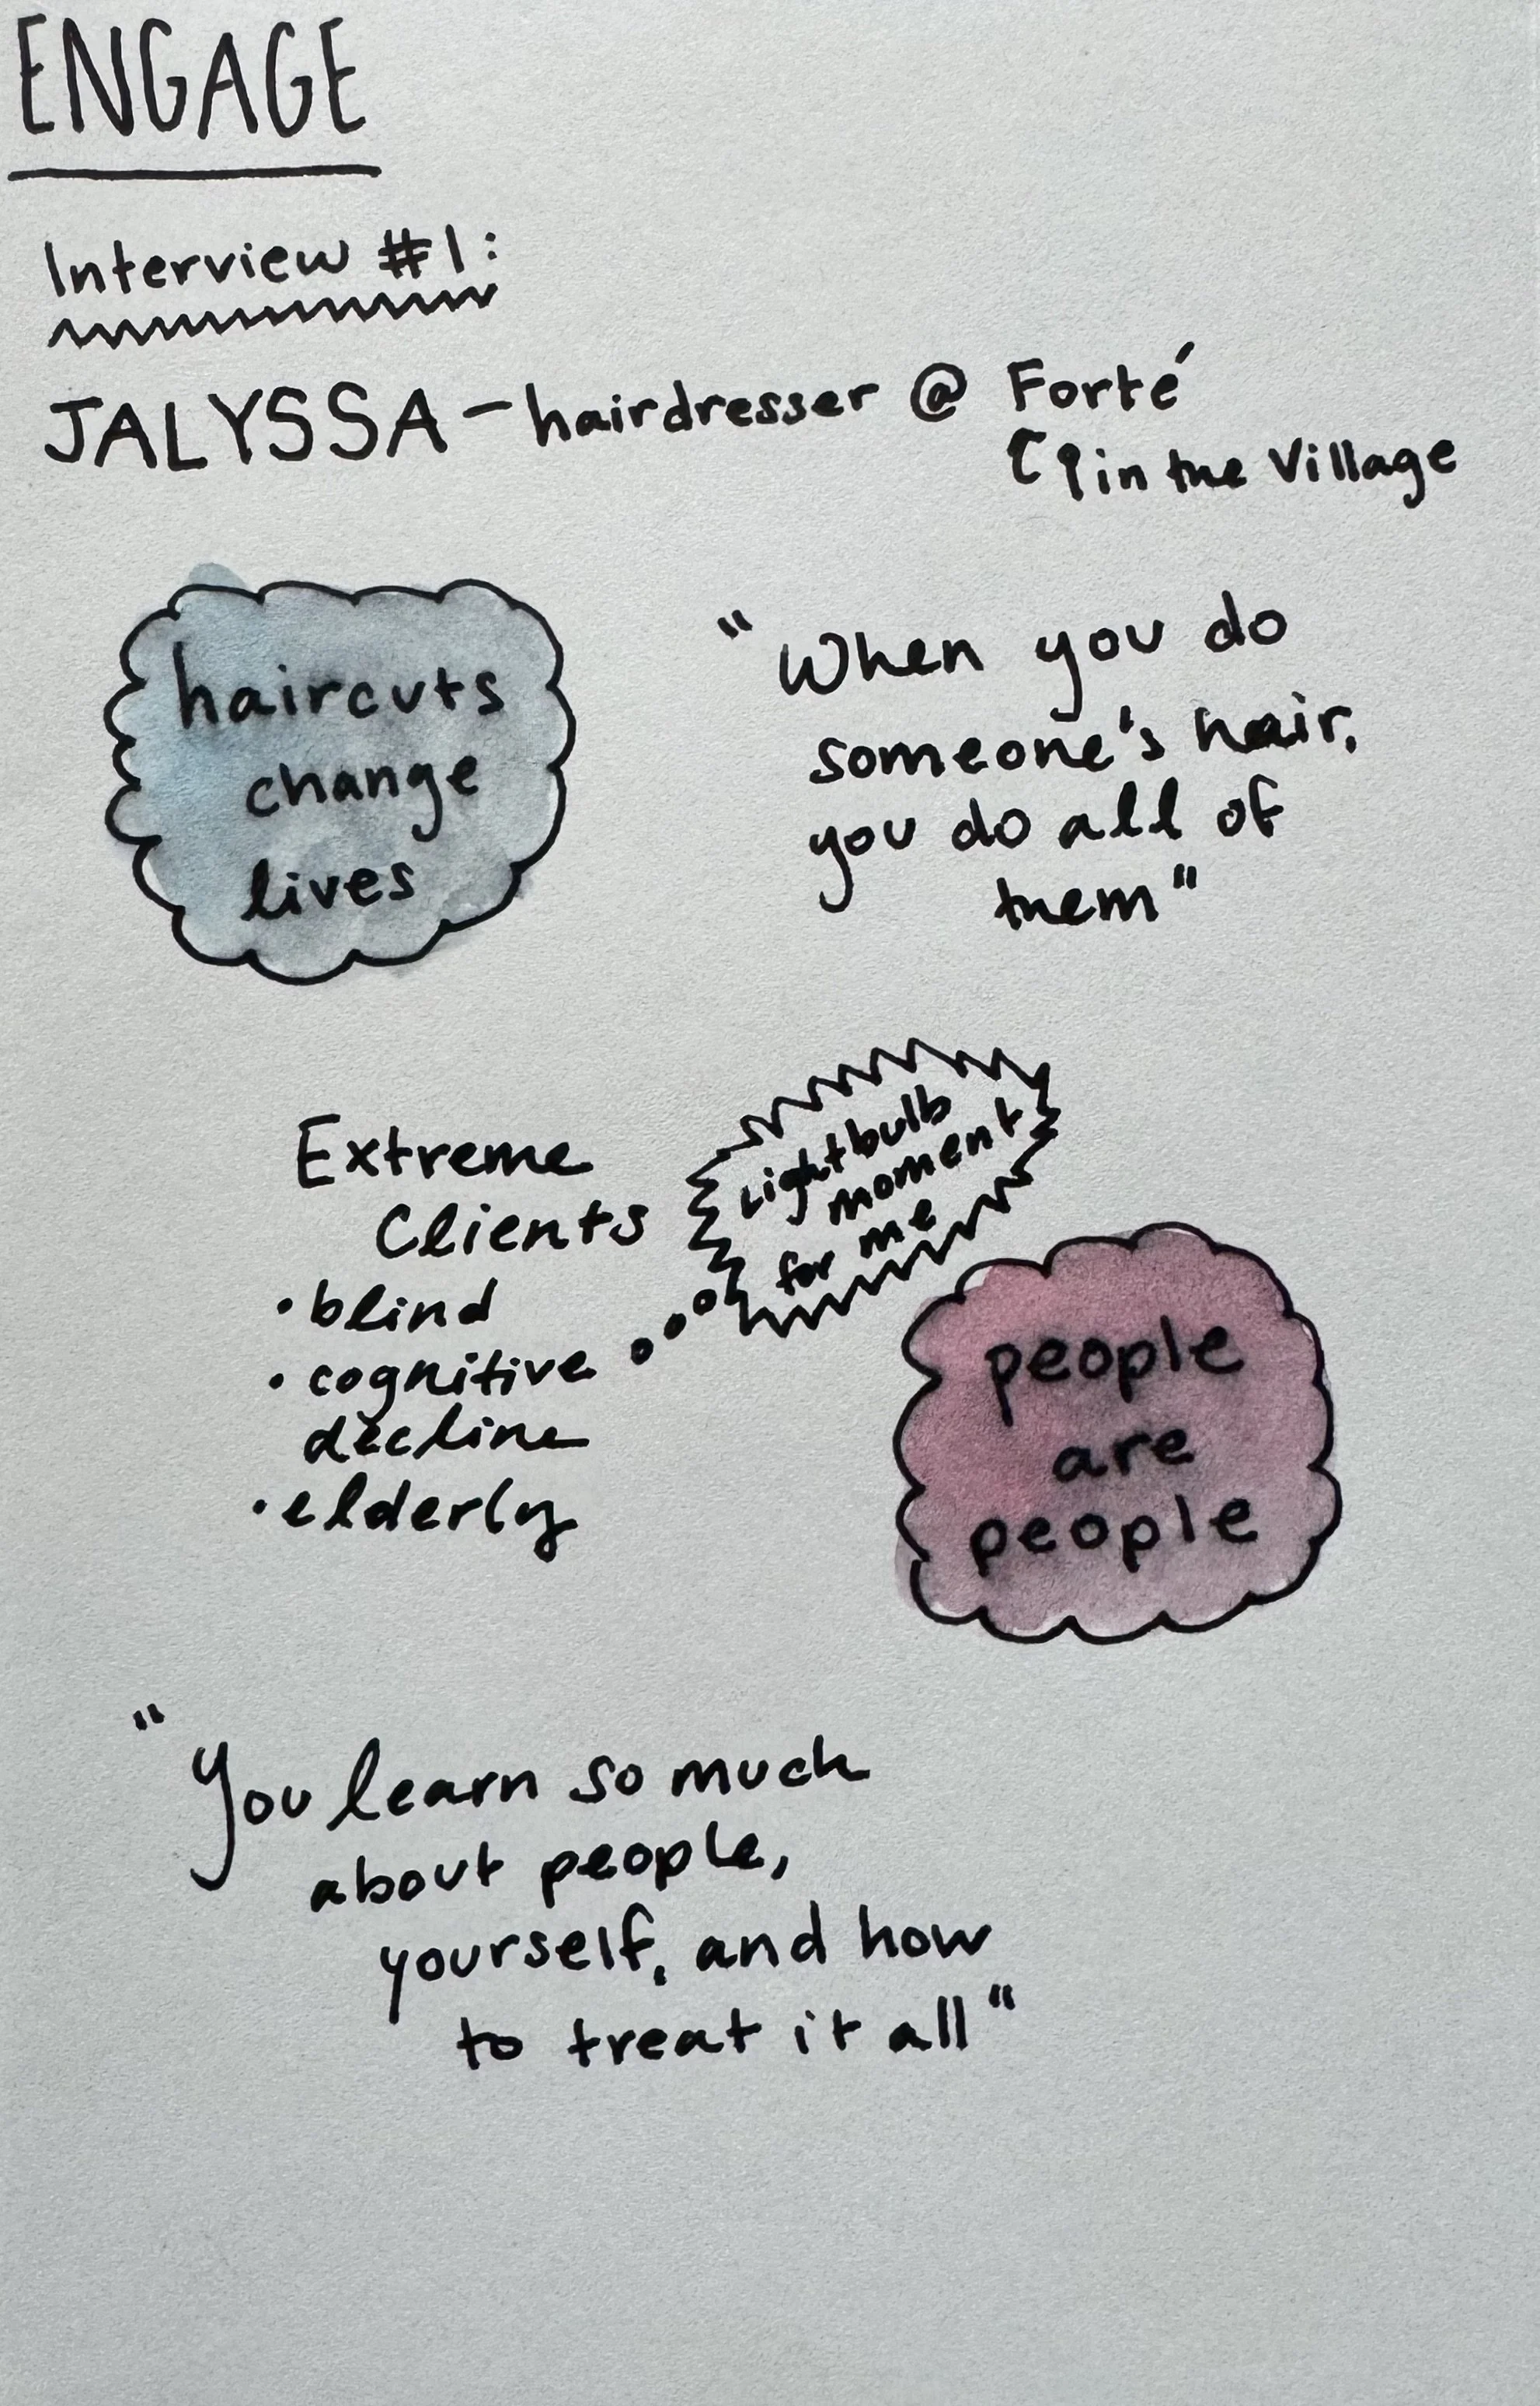 ENGAGE
Interview #1:
JALYSSA - hairdresser @ Forté
in the Village
haircuts
change
lives
"When you do
someone's hair,
you do all of
them"
Extreme
Clients
• blind
• cognitive
decline
• elderly
Lightbulb
moment
for me
people
are
people
"You learn so much
about people,
yourself, and how
to treat it all"